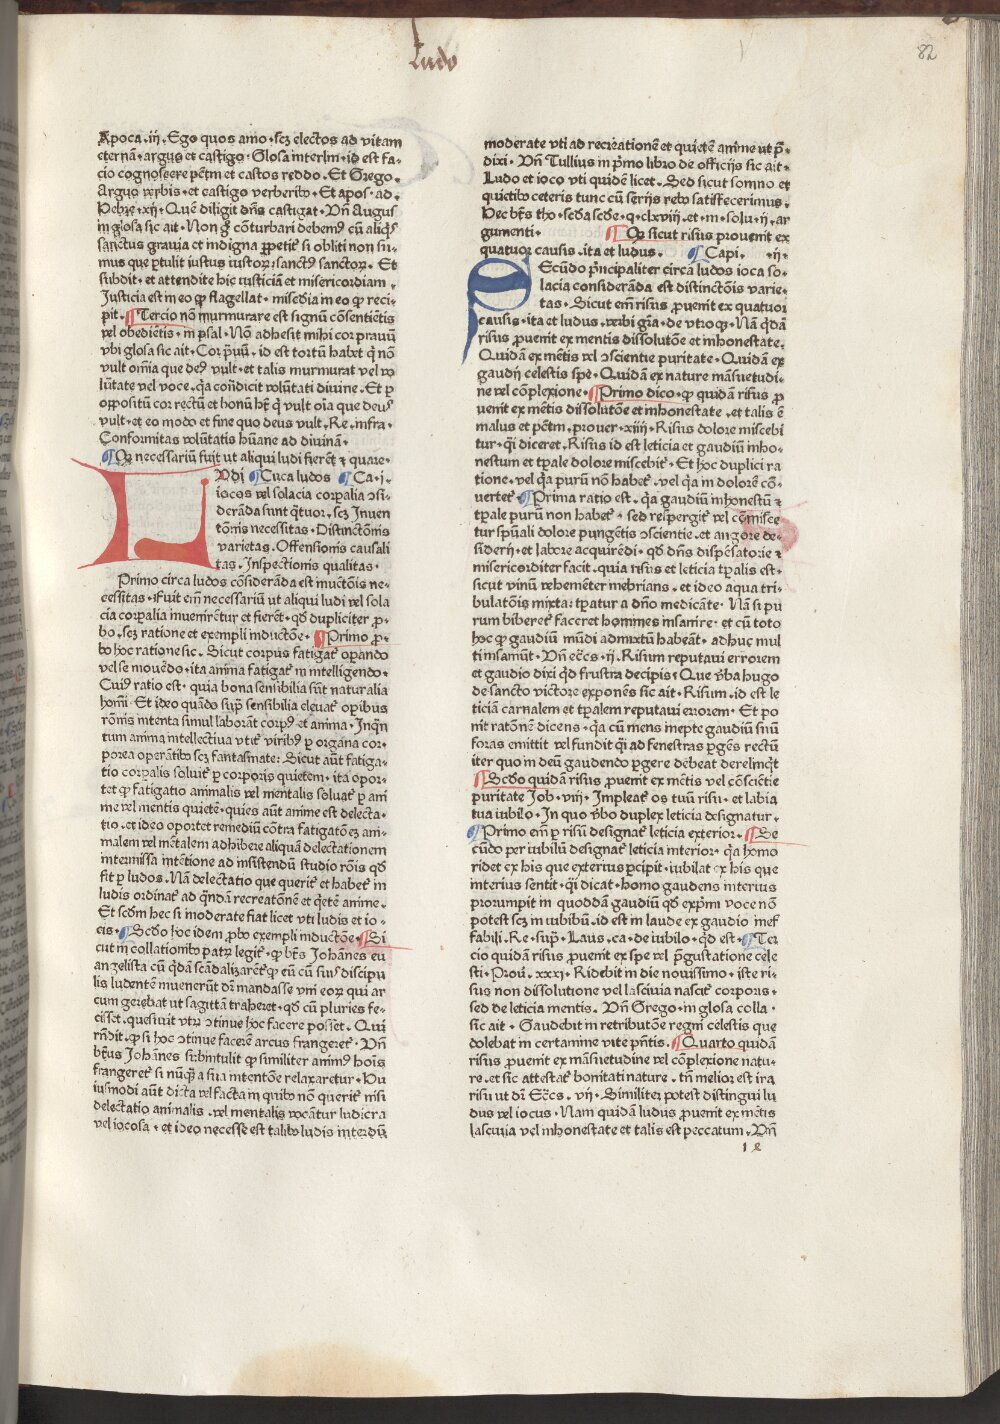 Ludo
82
Apoca.iij. Ego quos amo.scz electos ad vitam
eternā.arguo et castigo. Glosa interlin.id est fa-
cio cognoscere pctm et castos reddo. Et Grego.
Arguo verbis.et castigo verberibꝰ. Et apos.ad.
Hebre.xij. Quē diligit dn̄s castigat. Vn̄ Augus
in glosa sic ait. Non g̊ cōturbari debemꝰ cū aliqͥs
sanctus grauia et indigna ꝑpetit̉ si obliti non su-
mus que ꝑtulit iustus iustoꝝ:sanctꝰ sanctoꝝ. Et
subdit.et attendite hic iusticiā et misericordiam.
Justicia est in eo ꝙ flagellat.misc̄dia in eo ꝙ reci-
pit. Tercio nō murmurare est signū cōsentiētis
vel obediētis.in psal. Nō adhesit mihi cor prauū
vbi glosa sic ait. Cor p̄uū.id est tortū habet q̄ nō
vult om̄ia que deꝰ vult.et talis murmurat vel vo
lūtate vel voce.qa cōtradicit volūtati diuine. Et ꝑ
oppositū cor rectū et bonū hꝫ q̇ vult oīa que deus
vult.et eo modo et fine quo deus vult. Re.infra.
Conformitas volūtatis hūane ad diuinā.
Qꝫ necessariū fuit ut aliqui ludi fierēt ⁊ quare.
LVdi Circa ludos Ca.j.
iocos vel solacia corꝑalia ↄsi-
derāda sunt qͣtuor.scꝫ Inuen
tōnis necessitas.Distinctōnis
varietas.Offensionis causali
tas.Inspectionis qualitas.
Primo circa ludos cōsiderāda est inuctōnis ne-
cessitas. Fuit em̄ necessariū ut aliqui ludi vel sola
cia corꝑalia inuenirētur et fierēt.qd dupliciter ꝓ-
bo.scꝫ ratione et exempli inductōe. Primo ꝓ-
bo hoc ratione sic. Sicut corpus fatigat̉ oꝑando
vel se mouēdo.ita anima fatigat̉ in intelligendo.
Cuiꝰ ratio est.quia bona sensibilia sūt naturalia
homī. Et ideo quādo suꝑ sensibilia eleuat̉ oꝑibus
rōnis intenta simul laborāt corpꝰ et anima. Inqn̄
tum anima intellectiua vtit̉ viribꝰ ꝑ organa cor-
porea oꝑantibꝰ scꝫ fantasmate: Sicut aūt fatiga-
tio corꝑalis soluit̉ ꝑ corporis quietem.ita opor-
tet ꝙ fatigatio animalis vel mentalis soluat̉ ꝑ ani
me vel mentis quietē.quies aūt anime est delecta-
tio.et ideo oportet remediū cōtra fatigatōeꝫ ani-
malem vel mētalem adhibere aliquā delectationem
intermissa intētione ad insistendū studio rōis qd
fit ꝑ ludos. Nā delectatio que querit̉ et habet̉ in
ludis ordinat̉ ad qͣndā recreatōnē et qͥetē anime.
Et scd̄m hec si moderate fiat licet vti ludis et io-
cis. Scd̄o hoc idem ꝓbo exempli inductōe. Si
cut in collationibꝰ patꝝ legit̉.ꝙ bt̄s Johānes eu
angelista cū qͥdā scādalizarēt̉ ꝙ eū cū suis discipu
lis ludentē inuenerūt dr̄ mandasse vni eoꝝ qui ar
cum gerebat ut sagittā traheret.qd cū pluries fe-
cisset.quesiuit vtꝝ ↄtinue hoc facere posset. Qui
rn̄dit.ꝙ si hoc ↄtinue facerē arcus frangeret̉. Vn̄
bt̄us Johānes subintulit ꝙ similiter animꝰ hoīs
frangeret̉ si nūqͣ a sua intentōe relaxaretur. Hu
iusmodi aūt dicta vel facta in quibꝰ nō querit̉ nisi
delectatio animalis.vel mentalis vocātur ludicra
vel iocosa.et ideo necesse est talibꝰ ludis interdū
moderate vti ad recreationē et quietē anime ut p̄-
dixi. Vn̄ Tullius in pͥmo libro de officijs sic ait.
Ludo et ioco vti quidē licet. Sed sicut somno et
quietibꝰ ceteris tunc cū serijs rebꝰ satisfecerimus.
Hec bt̄s tho.scd̄a scd̄e.q.clxviij.et.in.solu.ij.ar
gumenti. Qꝫ sicut risus prouenit ex
quatuor causis.ita et ludus. Capi. ij.
SEcūdo pͥncipaliter circa ludos ioca so-
lacia considerāda est distinctōis varie-
tas. Sicut em̄ risus ꝓuenit ex quatuor
causis.ita et ludus.verbi gr̄a.de vtroqꝫ. Nā qͥdā
risus ꝓuenit ex mentis dissolutōe et inhonestate.
Quidā ex mētis vel ↄscientie puritate. Quidā ex
gaudij celestis spe. Quidā ex nature māsuetudi-
ne vel cōplexione. Primo dico.ꝙ quidā risus ꝓ
uenit ex mētis dissolutōe et inhonestate.et talis ē
malus et pctm̄.prouer.xiiij. Risus dolore miscebi
tur.qͣi diceret. Risus id est leticia et gaudiū inho-
nestum et tp̄ale dolore miscebit̉. Et hoc duplici ra
tione.vel qa purū non habet̉.vel qa in dolorē cō-
uertet̉. Prima ratio est.qa gaudiū inhonestū ⁊
tp̄ale purū non habet̉.sed respergit̉ vel cōmisce
tur spūali dolore pungētis ↄscientie.et angore de-
siderij.et labore acquirēdi.qd dn̄s dispēsatorie ⁊
misericorditer facit.quia risus et leticia tp̄alis est.
sicut vinū vehemēter inebrians.et ideo aqua tri-
bulatōis mixta: tp̄atur a dn̄o medicāte. Nā si pu
rum biberet̉ faceret homines insanire.et cū toto
hoc ꝙ gaudiū mūdi admixtū habeāt.adhuc mul
ti insaniūt. Vn̄ ecc̄s.ij. Risum reputaui errorem
et gaudio dixi qd frustra decipis: Que v̓ba hugo
de sancto victore exponēs sic ait. Risum.id est le
ticiā carnalem et tp̄alem reputaui errorem. Et po
nit ratōnē dicens.qa cū mens inepte gaudiū suū
foras emittit vel fundit qͣi ad fenestras ꝑgēs rectū
iter quo in deū gaudendo ꝑgere debeat derelinqͥt
Scd̄o quidā risus ꝓuenit ex mētis vel cōscientie
puritate Job.viij. Impleat̉ os tuū risu.et labia
tua iubilo. In quo v̓bo duplex leticia designatur.
Primo em̄ ꝑ risū designat̉ leticia exterior. Se
cūdo per iubilū designat̉ leticia interior.qa homo
ridet ex his que exterius ꝑcipit.iubilat ex his que
interius sentit.qͣi dicat.homo gaudens interius
prorumpit in quoddā gaudiū qd exp̄mi voce nō
potest scꝫ in iubilū.id est in laude ex gaudio inef
fabili. Re.suꝑ. Laus.ca.de iubilo.qd est. Ter
cio quidā risus ꝓuenit ex spe vel p̄gustatione cele
sti. Prou.xxxj. Ridebit in die nouissimo.iste ri-
sus non dissolutione vel lasciuia nascit̉ corporis.
sed de leticia mentis. Vn̄ Grego.in glosa colla.
sic ait. Gaudebit in retributōe regni celestis que
dolebat in certamine vite pn̄tis. Quarto quidā
risus ꝓuenit ex māsuetudine vel cōplexione natu-
re.et sic attestat̉ bonitati nature.tn̄ melior est ira
risu ut dr̄ Ecc̄s.vij. Similiter potest distingui lu
dus vel iocus. Nam quidā ludus ꝓuenit ex mētis
lasciuia vel inhonestate et talis est peccatum. Vn̄
l 2